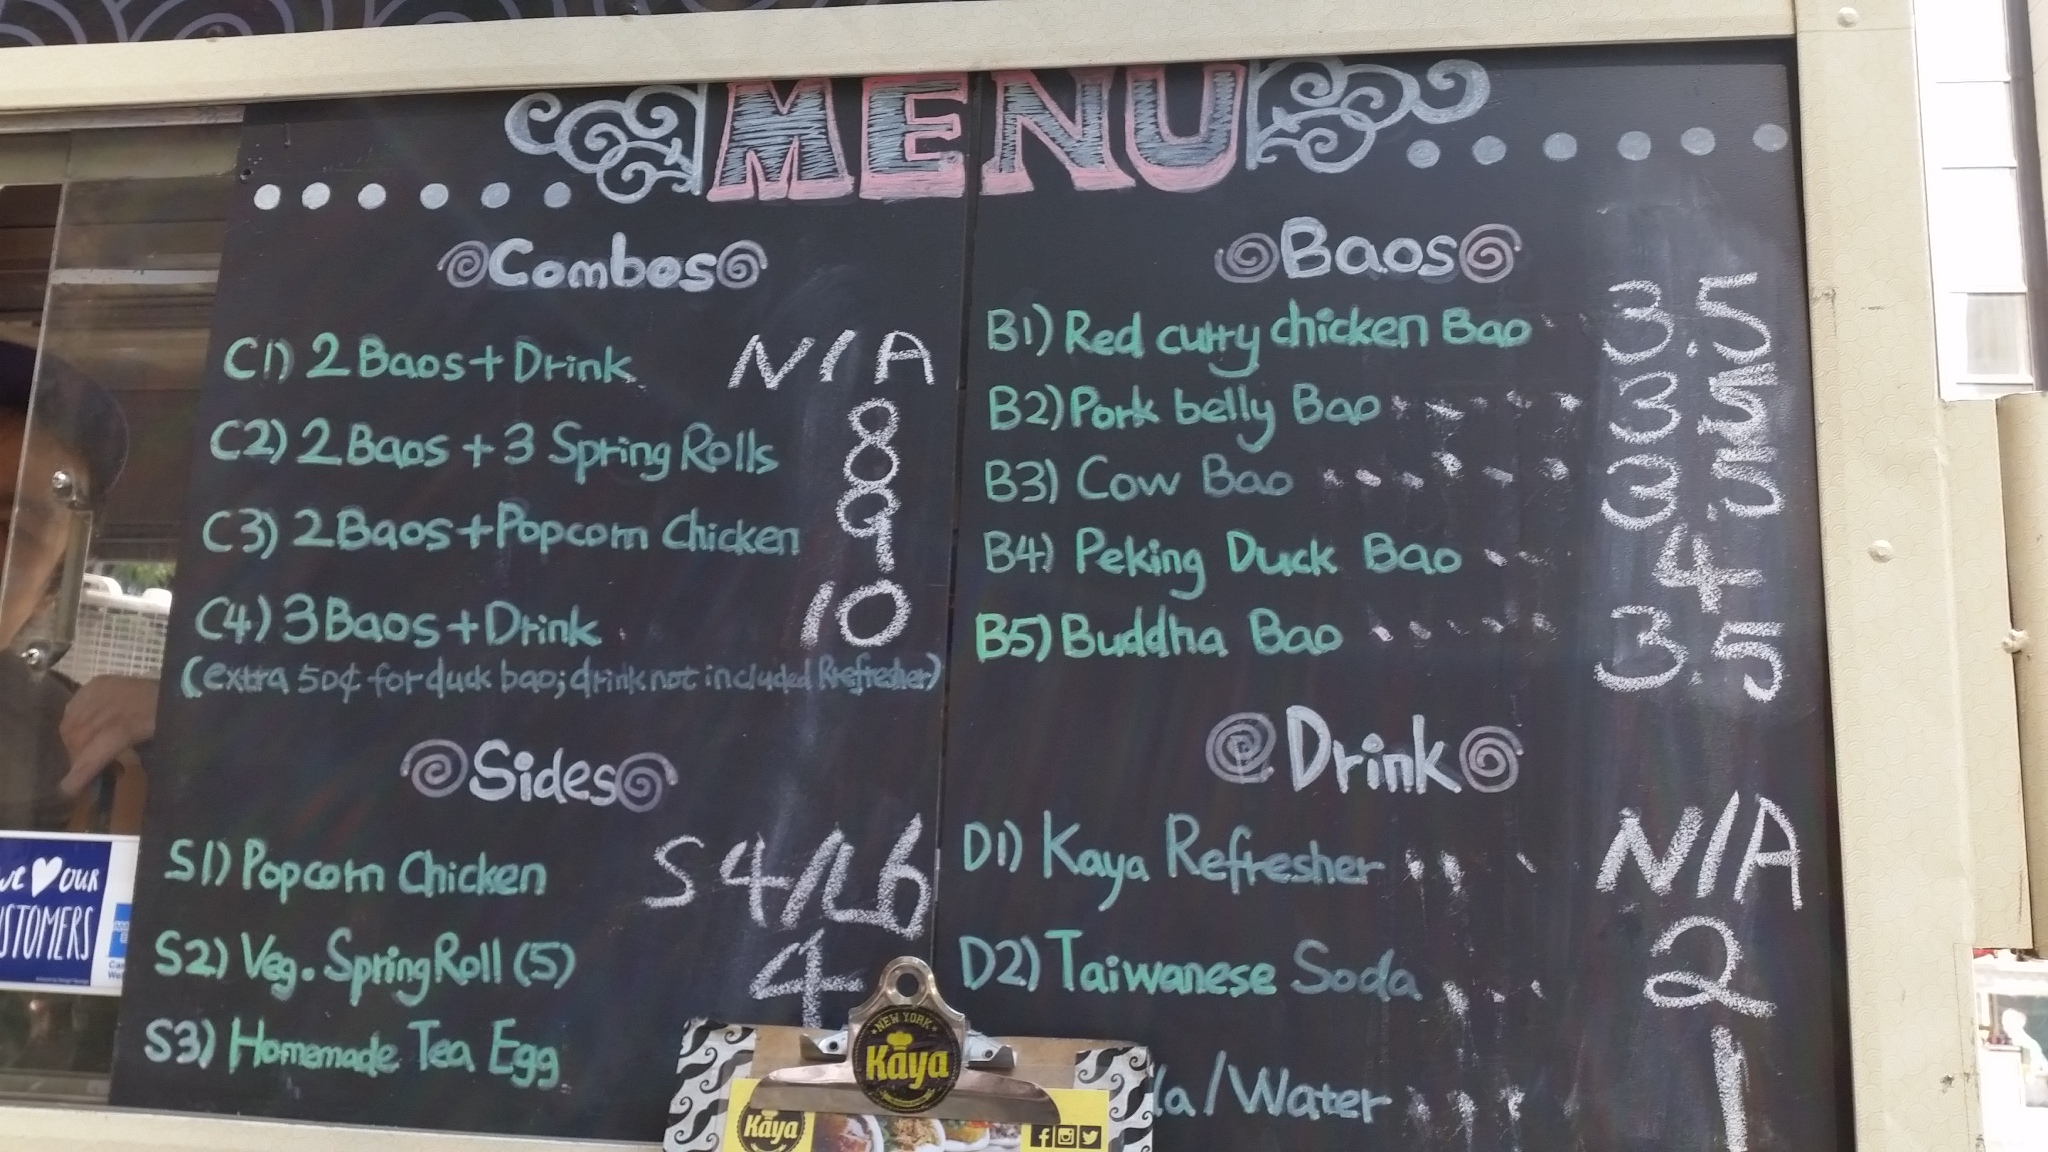 MENU
Combos
C1) 2 Baos + Drink N/A
C2) 2 Baos + 3 Spring Rolls 8
C3) 2 Baos + Popcorn Chicken 9
C4) 3 Baos + Drink 10
(extra 50¢ for duck bao; drink not included Refresher)
Sides
S1) Popcorn Chicken S4/L6
S2) Veg. Spring Roll (5) 4
S3) Homemade Tea Egg
Baos
B1) Red curry chicken Bao 3.5
B2) Pork belly Bao 3.5
B3) Cow Bao 3.5
B4) Peking Duck Bao 4
B5) Buddha Bao 3.5
Drink
D1) Kaya Refresher N/A
D2) Taiwanese Soda 2
/Water 1
NEW YORK
Kaya
Kaya
OUR